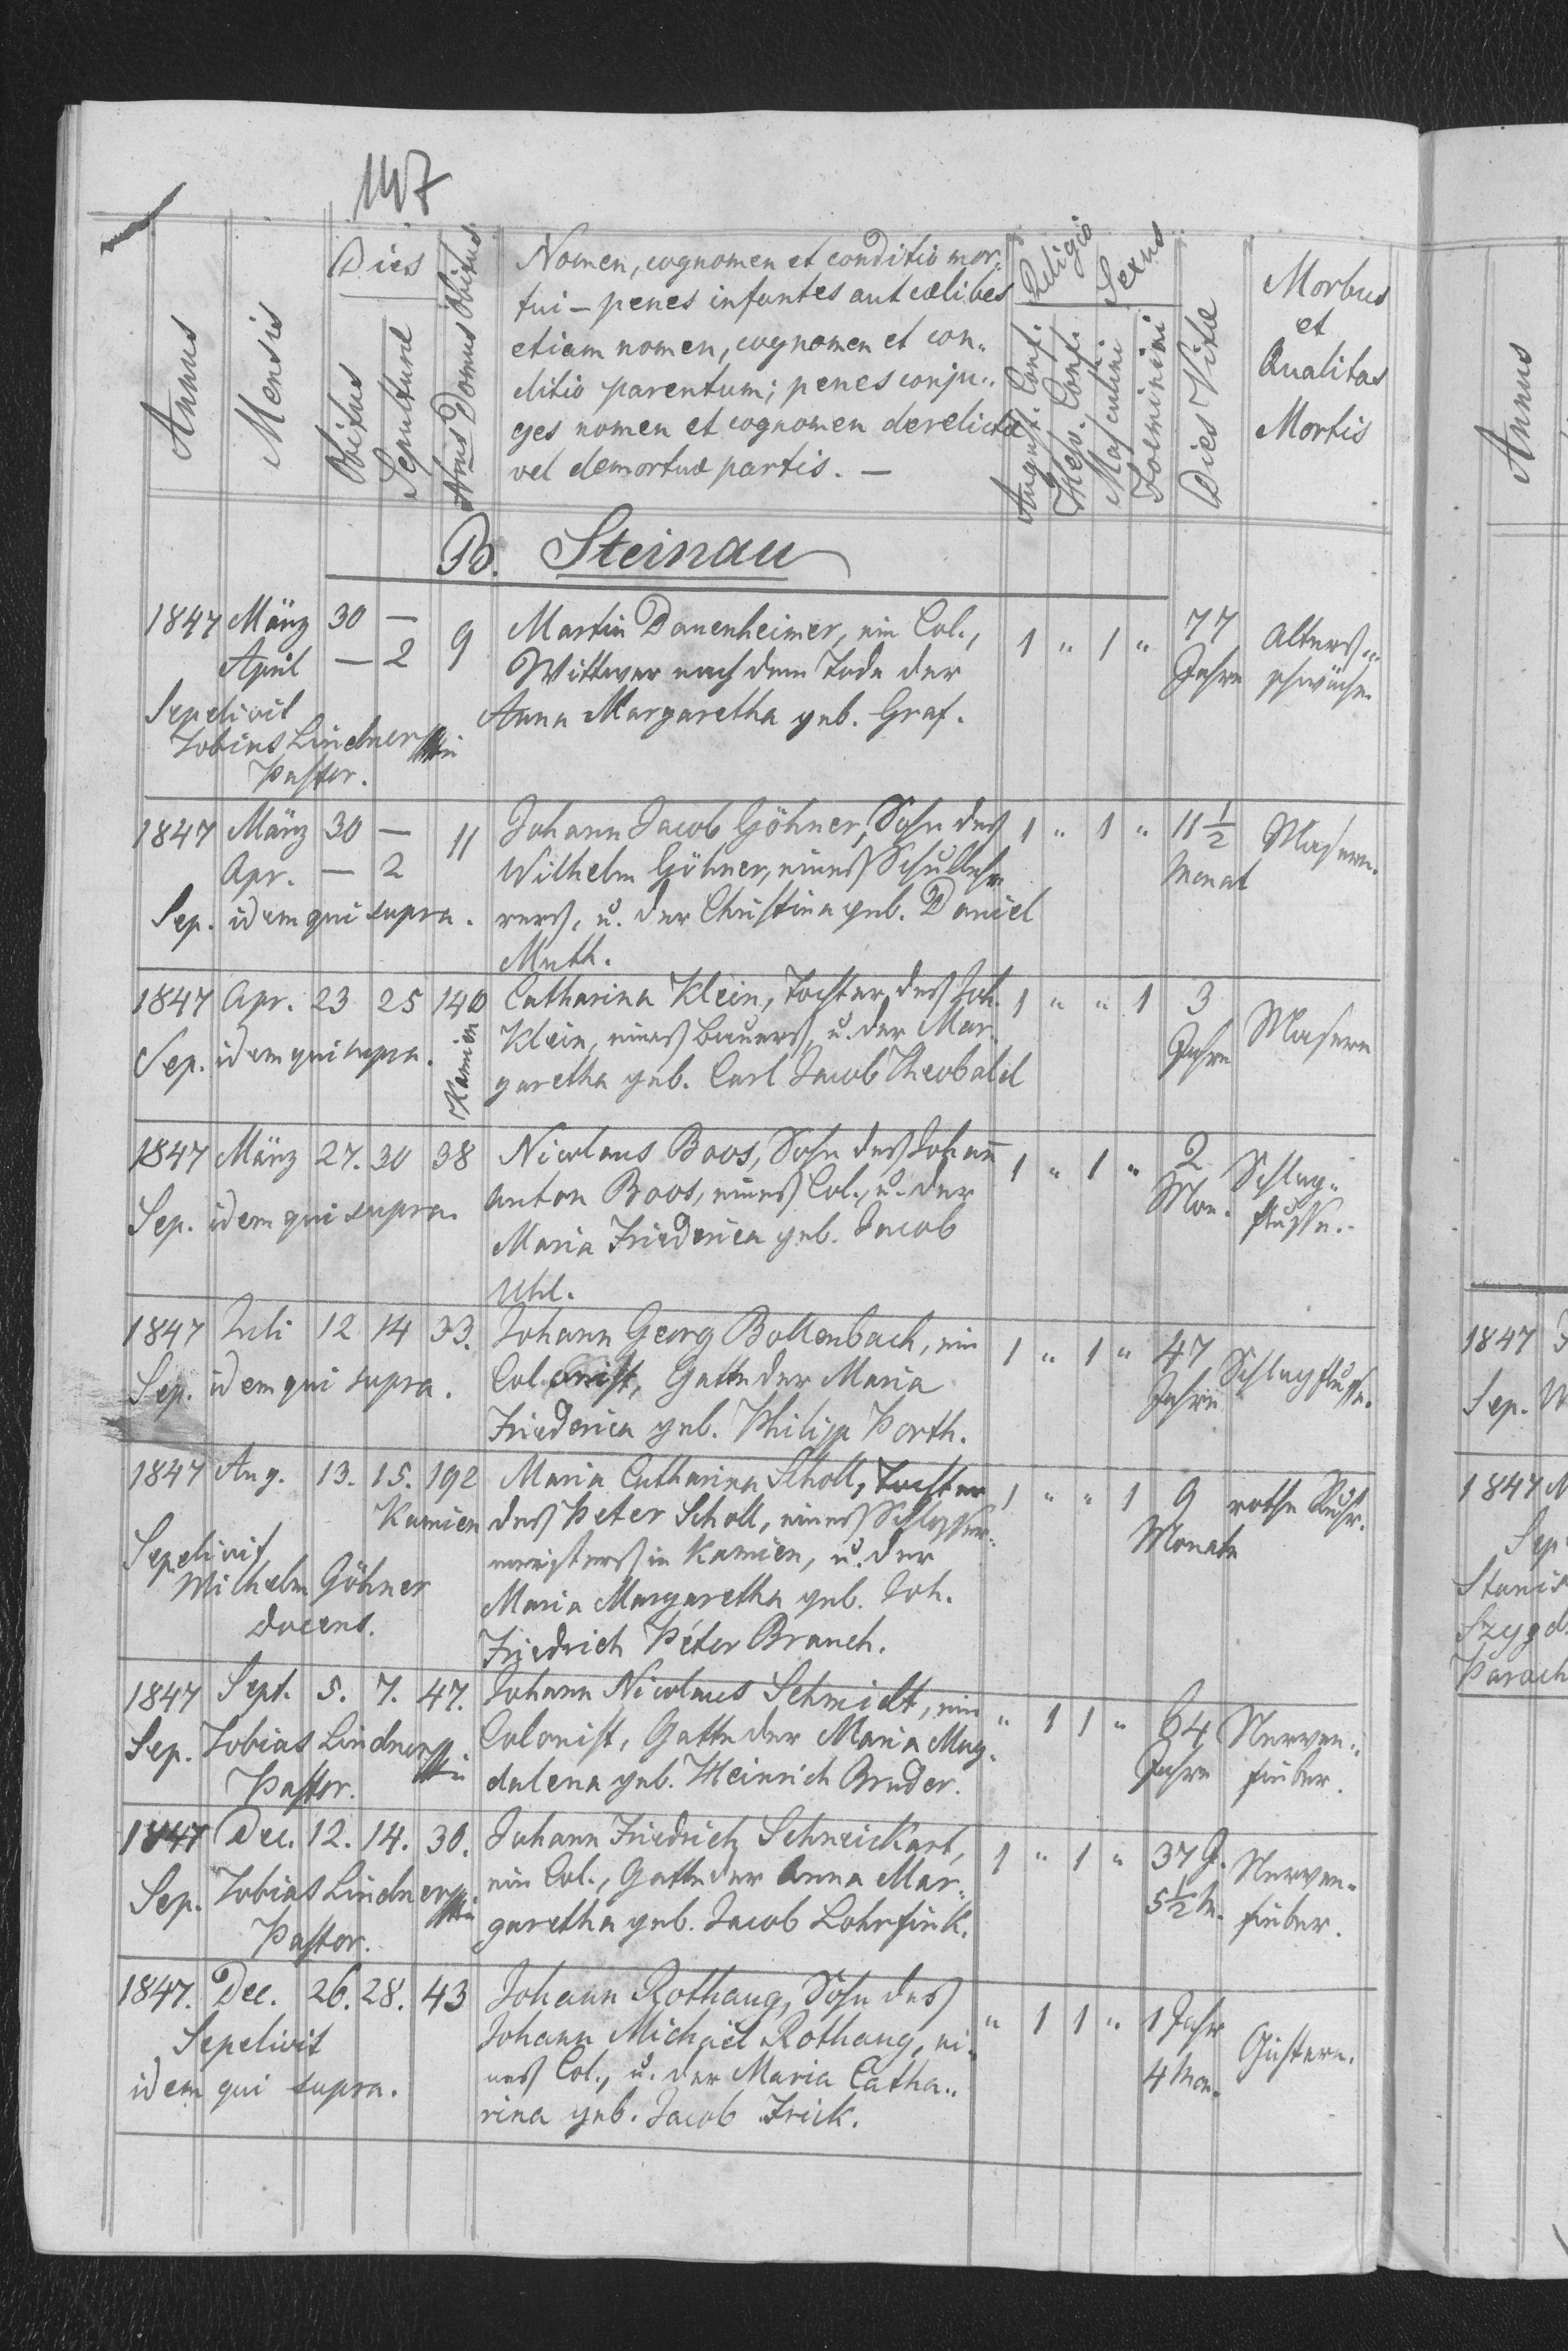 147
Annus
Mensis
Dies
Obitus
Sepulturae
Nrus Domus Obitus
Nomen, cognomen et conditio mor„
tui – penes infantes aut coelibes
etiam nomen, cognomen et con„
ditio parentum; penes conju„
ges nomen et cognomen derelictae
vel demortuae partis. —
Religio
August. Conf.
Helv. Conf.
Sexus
Masculini
Foeminini
Dies Vitae
Morbus
et
Qualitas
Mortis
B. Steinau
1847 März 30 — 9 Martin Dauenheimer, ein Col., 1 „ 1 „ 77 Alters„
April — 2 Wittwer nach dem Tode der Jahre schwäche.
Sepelivit Anna Margaretha geb. Graf.
Tobias Lindner
Pastor.
1847 März 30 — 11 Johann Jacob Göhner, Sohn des 1 „ 1 „ 11 1/2 Masern.
Apr. — 2 Wilhelm Göhner, eines Schulleh„ Monat
Sep. idem qui supra. rers, u. der Christina geb. Daniel
Muth.
1847 Apr. 23 25 140 Catharina Klein, Tochter des Joh. 1 „ „ 1 3 Masern
Kamien
Sep. idem qui supra. Klein, eines Bauers, u. der Mar„ Jahre
garetha geb. Carl Jacob Theobald
1847 März 27. 30 38 Nicolaus Boos, Sohn des Johann̄ 1 „ 1 „ 2 Schlag„
Sep. idem qui supra. Anton Boos, eines Col., u. der Mon. flusse.
Maria Friederica geb. Jacob
Uhl.
1847 Juli 12 14 33. Johann Georg Bollenbach, ein 1 „ 1 „ 47 Schlagflusse.
Sep. idem qui supra. Colonist, Gatte der Maria Jahre
Friederica geb. Philipp Porth.
1847 Aug. 13. 15. 192 Maria Catharina Scholl, Tochter 1 „ „ 1 9 rothe Ruhr.
Kamien des Peter Scholl, eines Schlosser„ Monate
Sepelivit meisters in Kamien, u. der
Wilhelm Göhner Maria Margaretha geb. Joh.
docens. Friedrich Peter Brauch.
1847 Sept. 5. 7. 47. Johann Nicolaus Schmidt, ein „ 1 1 „ 64 Nerven„
Sep. Tobias Lindner Colonist, Gatte der Maria Mag„ Jahre fieber.
Pastor. dalena geb. Heinrich Bruder.
1847 Dec. 12. 14. 30. Johann Friedrich Schneickart, 1 „ 1 „ 37 J. Nerven„
Sep. Tobias Lindner ein Col., Gatte der Anna Mar„ 5 1/2 M. fieber.
Pastor. garetha geb. Jacob Lohrfink.
1847. Dec. 26. 28. 43 Johann Rothaug, Sohn des „ 1 1 „ 1 Jahr
Sepelivit Johann Michäel Rothaug, ei„ 4 Mon.
idem qui supra. nes Col., u. der Maria Catha„
rina geb. Jacob Frick.
Annus
1847
Sep. W
1847
Sep
Stanis
Szygd
Paroch